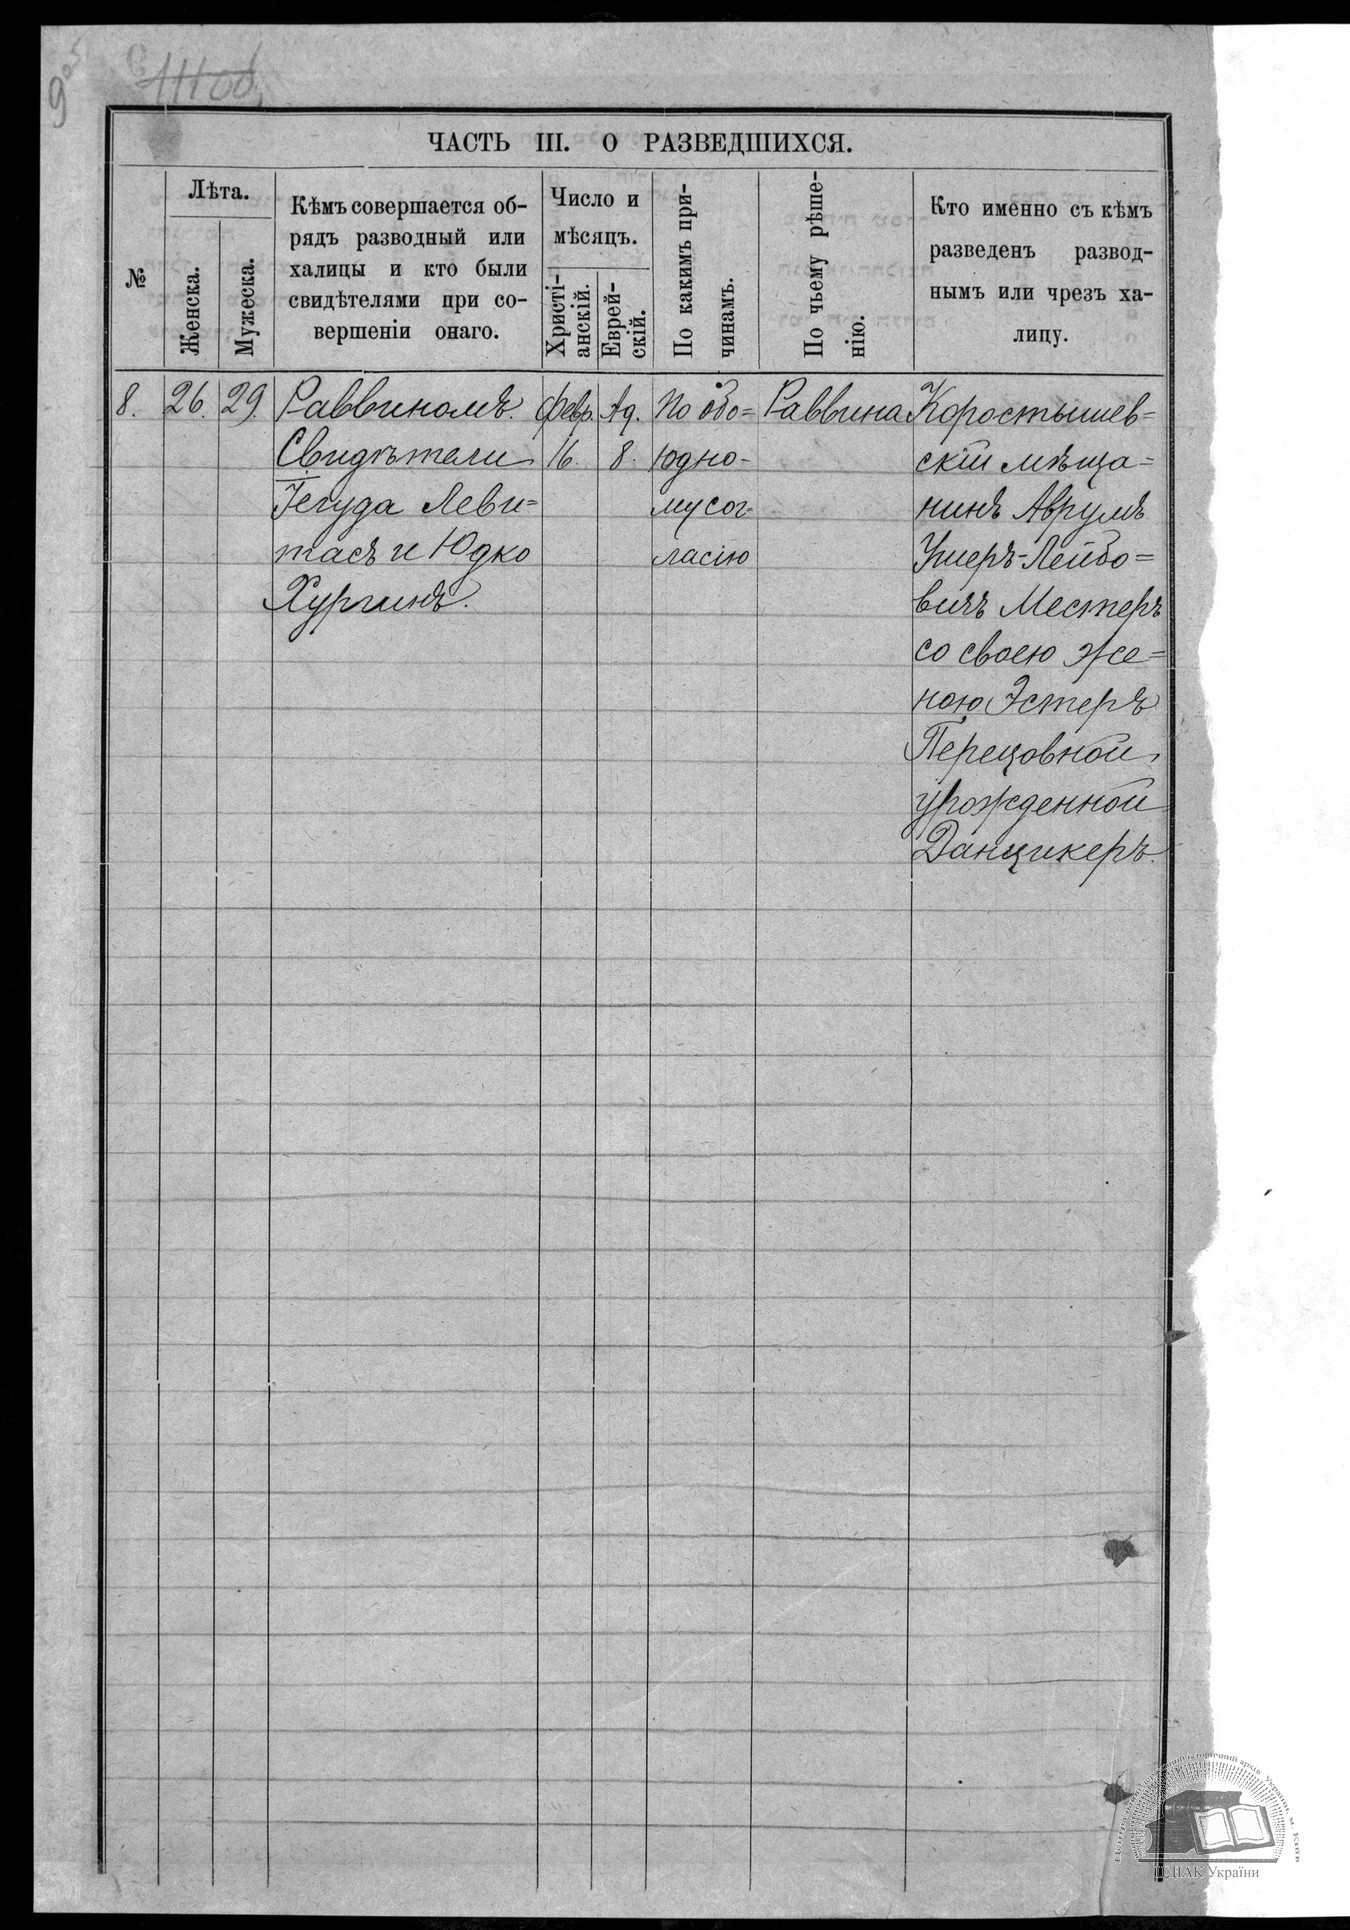 9
ЧАСТЬ III. О РАЗВЕДШИХСЯ.
№
Лѣта.
Женска.
Мужеска.
Кѣмъ совершается об-
рядъ разводный или
халицы и кто были
свидѣтелями при со-
вершеніи онаго.
Число и
мѣсяцъ.
Христі-
анскій.
Еврей-
скій.
По какимъ при-
чинамъ.
По чьему рѣше-
нію.
Кто именно съ кѣмъ
разведенъ развод-
нымъ или чрезъ ха-
лицу.
8.
26.
29.
Раввиномъ.
Свидѣтели
Іегуда Леви=
тасъ и Юдко
Хургинъ.
Февр.
16.
Ад.
8.
По обо=
юдно-
му сог-
ласію
Раввина
Коростышев=
скій мѣща=
нинъ Аврумъ
Ушеръ-Лейбо=
вичъ Местеръ
со своею же=
ною Эстеръ
Перецовной,
урожденной
Данцикеръ.
ЦДІАК України